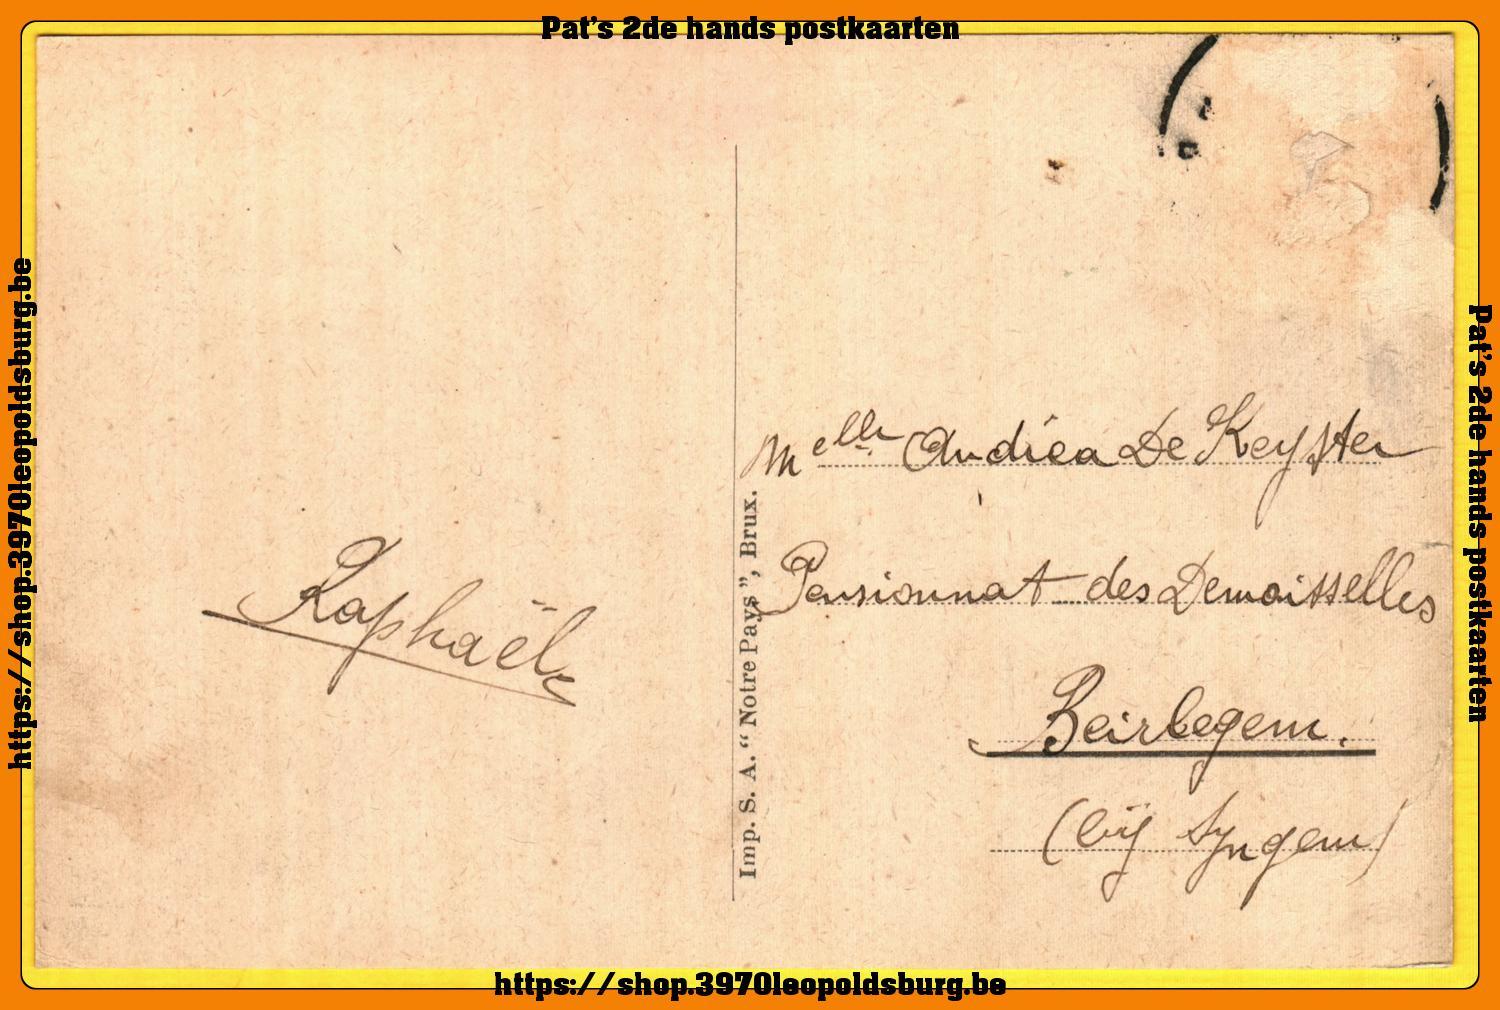 Pat's 2de hands postkaarten
https://shop.3970leopoldsburg.be
Raphaël
Imp. S. A. “Notre Pays”, Brux.
Melle Andréa De Keyster
Pensionnat des Demoisselles
Beirlegem.
(bij Syngem)
Pat's 2de hands postkaarten
https://shop.3970leopoldsburg.be